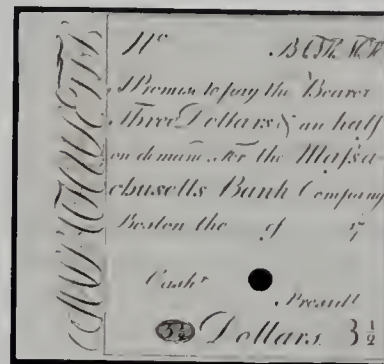 No
I Promise to pay the Bearer
Three Dollars & an half
on demand for the Massa-
chusetts Bank Company
Boston the of 17
Cashr
Presidt
3½ Dollars 3½